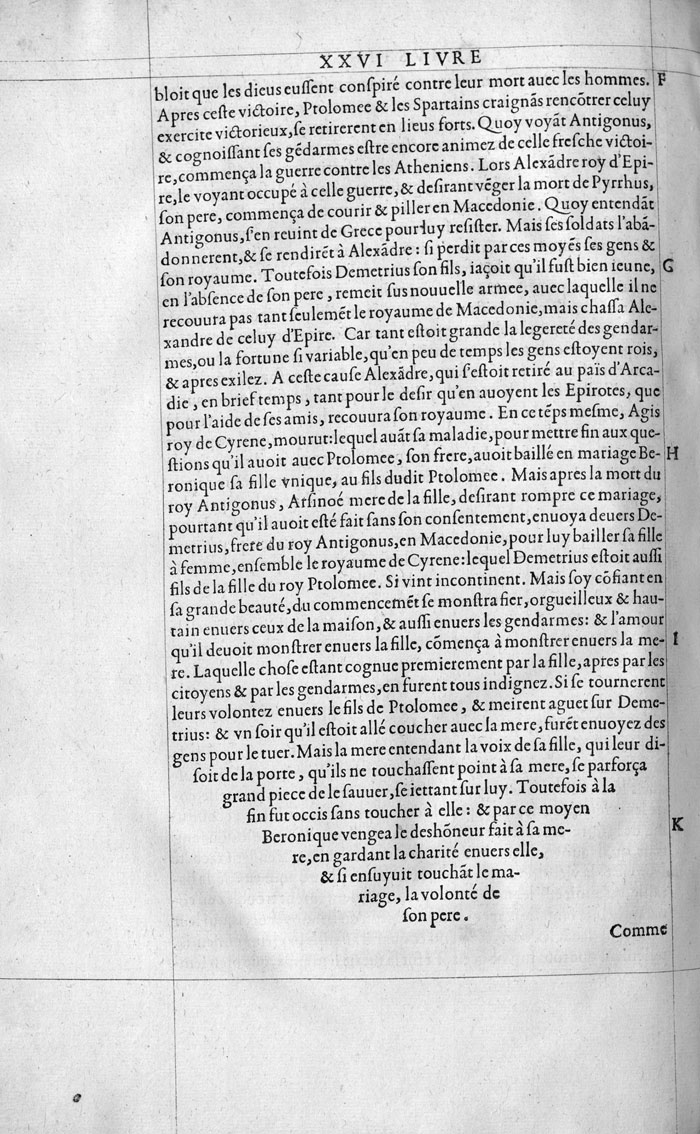 XXVI LIVRE
bloit que les dieus euſſent conſpiré contre leur mort auec les hommes. F
Apres ceſte victoire, Ptolomee & les Spartains craignãs rencõtrer celuy
exercite victorieux, ſe retirerent en lieus forts. Quoy voyãt Antigonus,
& cognoiſſant ſes gẽdarmes eſtre encore animez de celle freſche victoi-
re, commença la guerre contre les Atheniens. Lors Alexãdre roy d'Epi-
re, le voyant occupé à celle guerre, & deſirant vẽger la mort de Pyrrhus,
ſon pere, commença de courir & piller en Macedonie. Quoy entendãt
Antigonus, ſ'en reuint de Grece pour luy reſiſter. Mais ſes ſoldats l'abã-
donnerent, & ſe rendirẽt à Alexãdre: ſi perdit par ces moyẽs ſes gens &
ſon royaume. Toutefois Demetrius ſon fils, iaçoit qu'il fuſt bien ieune, G
en l'abſence de ſon pere, remeit ſus nouuelle armee, auec laquelle il ne
recouura pas tant ſeulemẽt le royaume de Macedonie, mais chaſſa Ale-
xandre de celuy d'Epire. Car tant eſtoit grande la legereté des gendar-
mes, ou la fortune ſi variable, qu'en peu de temps les gens eſtoyent rois,
& apres exilez. A ceſte cauſe Alexãdre, qui ſ'eſtoit retiré au païs d'Arca-
die, en brief temps, tant pour le deſir qu'en auoyent les Epirotes, que
pour l'aide de ſes amis, recouura ſon royaume. En ce tẽps meſme, Agis
roy de Cyrene, mourut: lequel auãt ſa maladie, pour mettre fin aux que-
ſtions qu'il auoit auec Ptolomee, ſon frere, auoit baillé en mariage Be- H
ronique ſa fille vnique, au fils dudit Ptolomee. Mais apres la mort du
roy Antigonus, Arſinoé mere de la fille, deſirant rompre ce mariage,
pourtant qu'il auoit eſté fait ſans ſon conſentement, enuoya deuers De-
metrius, frere du roy Antigonus, en Macedonie, pour luy bailler ſa fille
à femme, enſemble le royaume de Cyrene: lequel Demetrius eſtoit auſſi
fils de la fille du roy Ptolomee. Si vint incontinent. Mais ſoy cõfiant en
ſa grande beauté, du commencemẽt ſe monſtra fier, orgueilleux & hau-
tain enuers ceux de la maiſon, & auſſi enuers les gendarmes: & l'amour
qu'il deuoit monſtrer enuers la fille, cõmença à monſtrer enuers la me- I
re. Laquelle choſe eſtant cognue premierement par la fille, apres par les
citoyens & par les gendarmes, en furent tous indignez. Si ſe tournerent
leurs volontez enuers le fils de Ptolomee, & meirent aguet ſur Deme-
trius: & vn ſoir qu'il eſtoit allé coucher auec la mere, furẽt enuoyez des
gens pour le tuer. Mais la mere entendant la voix de ſa fille, qui leur di-
ſoit de la porte, qu'ils ne touchaſſent point à ſa mere, ſe parforça
grand piece de le ſauuer, ſe iettant ſur luy. Toutefois à la
fin fut occis ſans toucher à elle: & par ce moyen K
Beronique vengea le deshõneur fait à ſa me-
re, en gardant la charité enuers elle,
& ſi enſuyuit touchãt le ma-
riage, la volonté de
ſon pere.
Comme